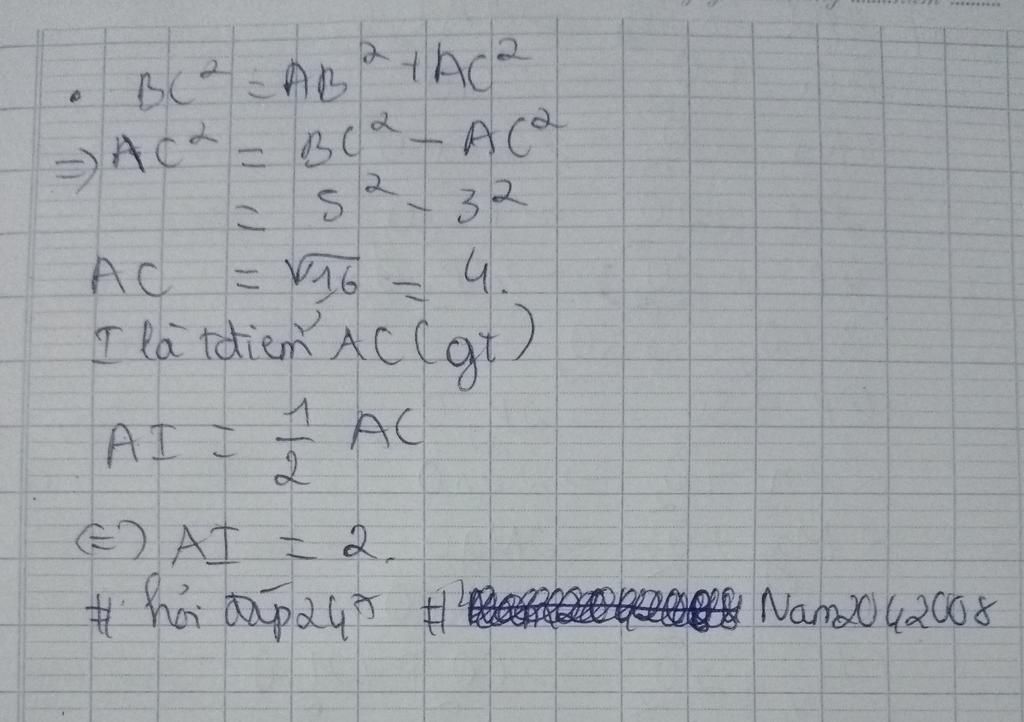 • BC² = AB² + AC²
⇒ AC² = BC² - AC²
= 5² - 3²
AC = √16 = 4.
I là tđiểm AC (gt)
AI = 1/2 AC
⇔ AI = 2.
# hỏi đáp 247 # Nam2042008